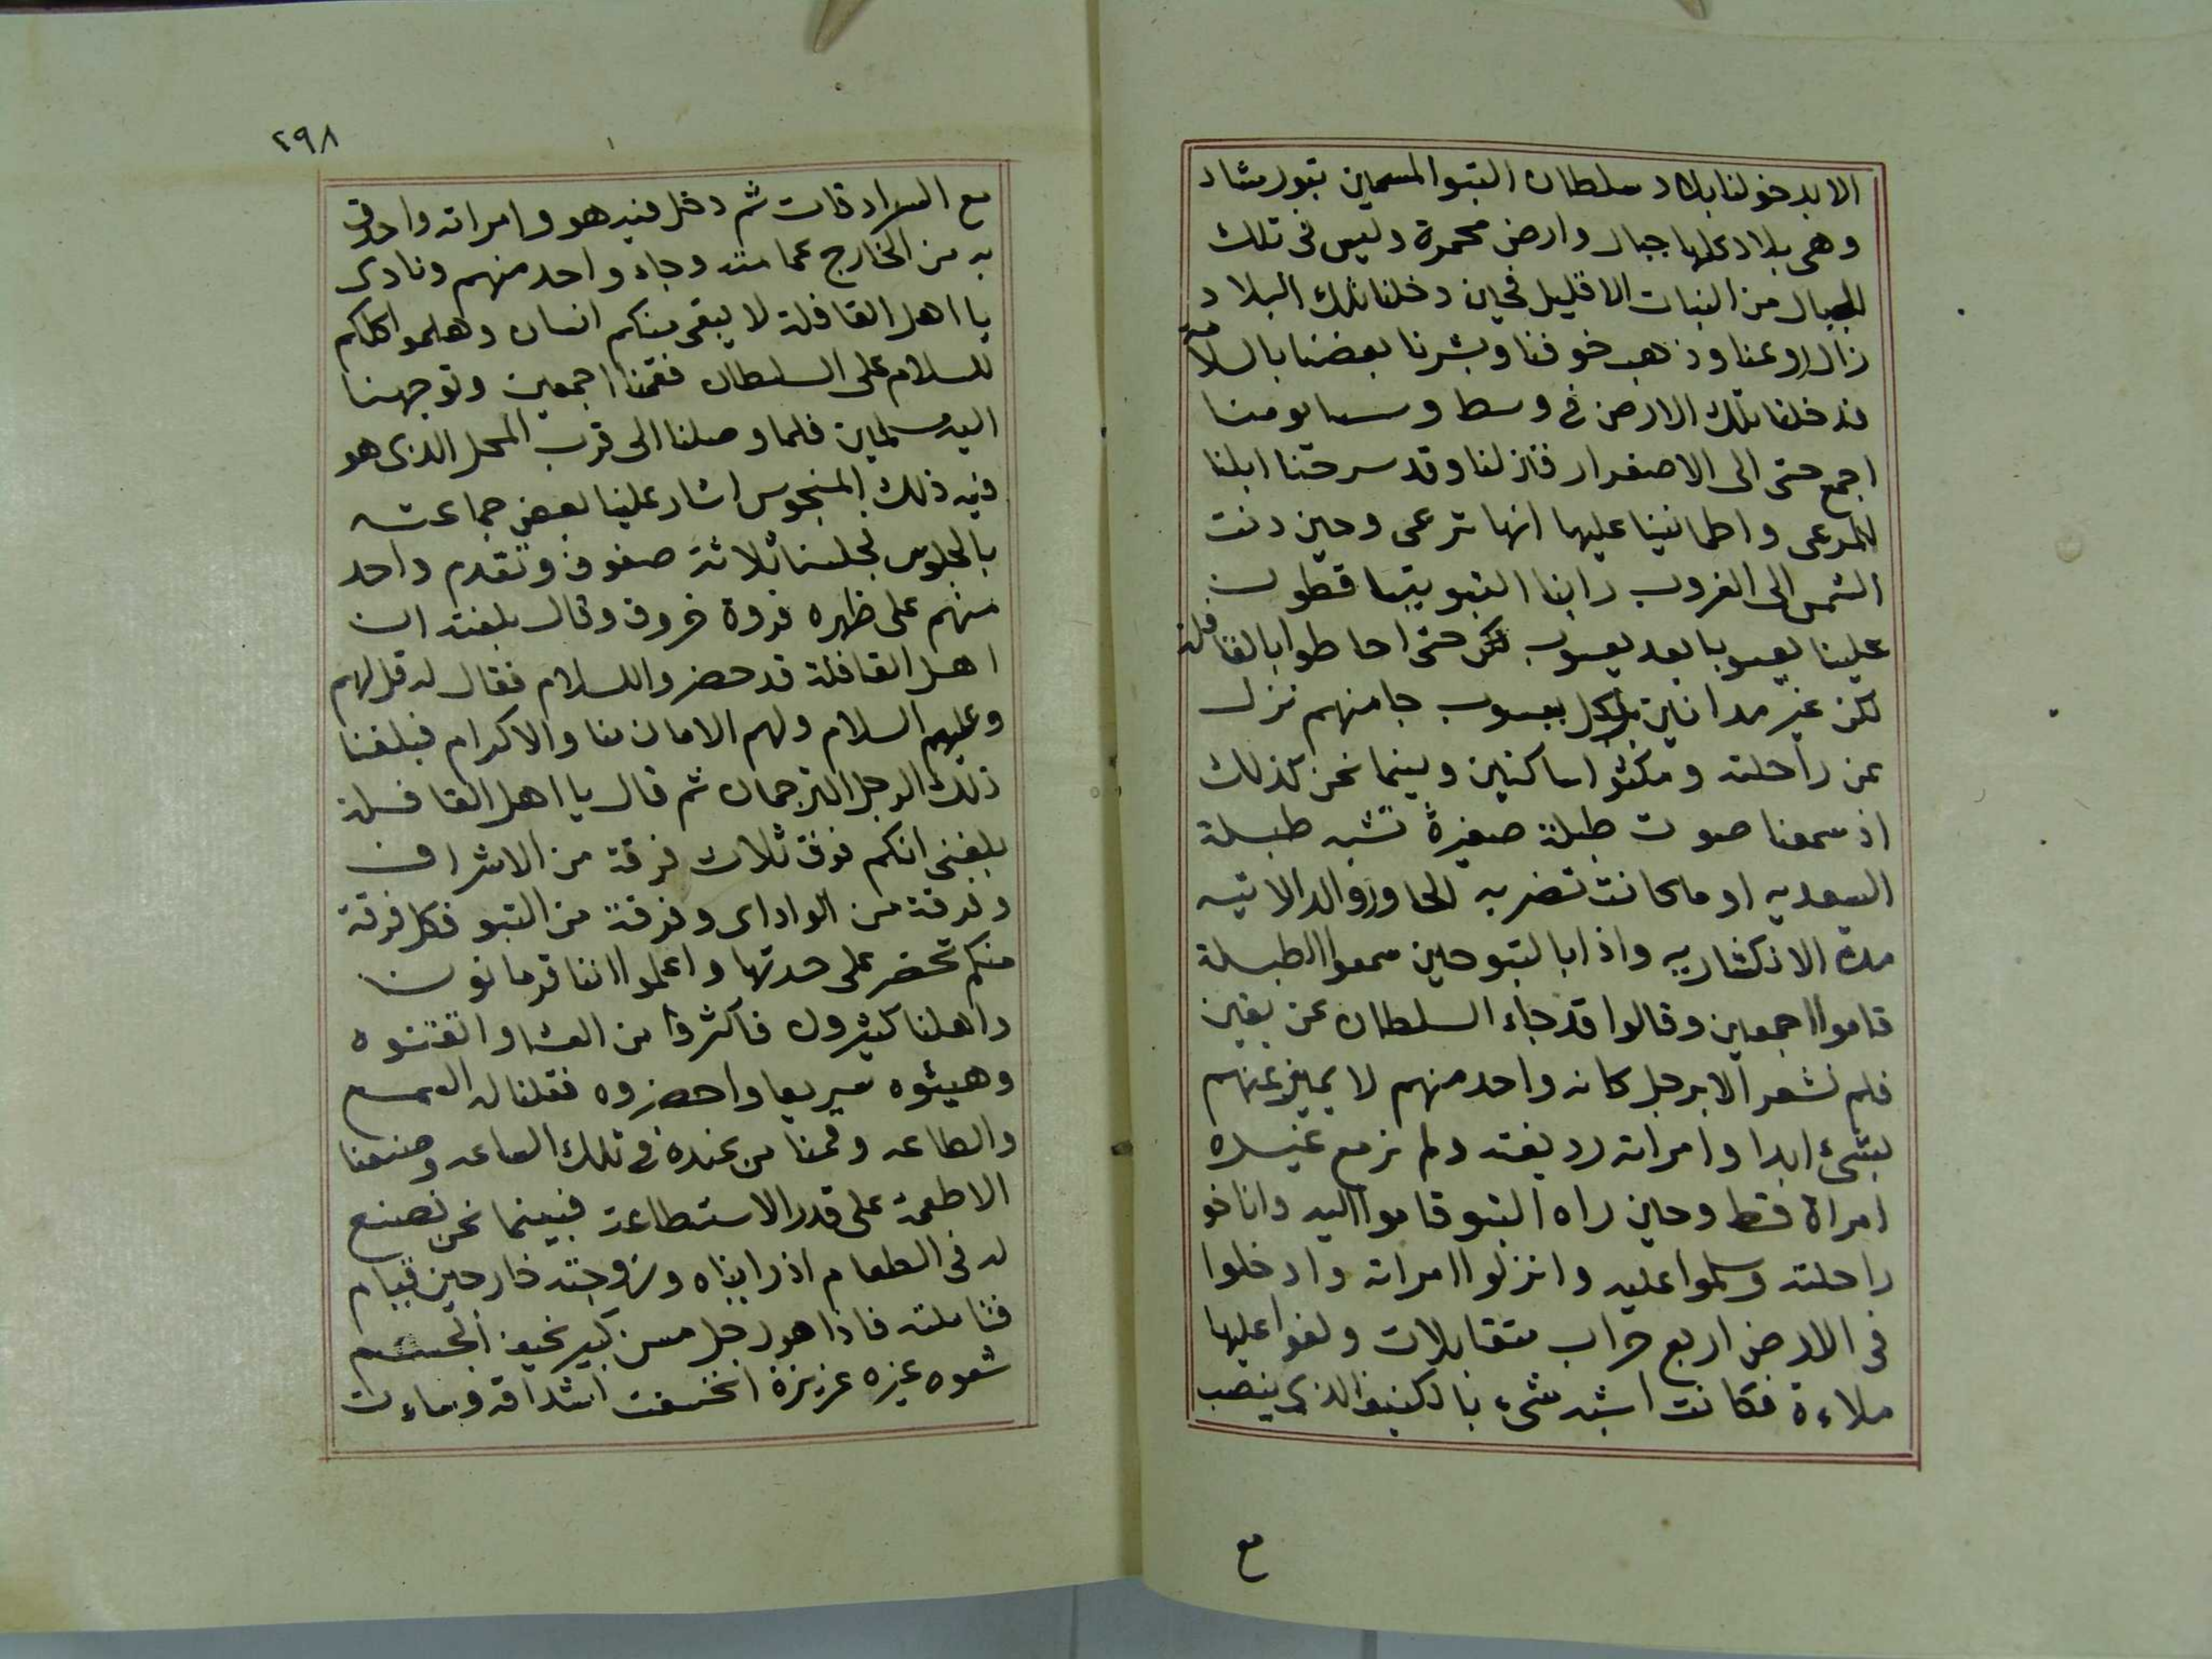 الا بدخولنا بلاد سلطان التبو المسمين بتورشاد
وهى بلاد علها جبال وارض محمرة وليس فى تلك
الجبال من النبات الا قليل فحين دخلنا تلك البلاد
زال روعنا وذهب خوفنا وبشرنا بعضنا بالسلامة
فدخلنا تلك الارض فى وسط وسابومنا
اجمع حتى الى الاصفرار فنزلنا وقد سرحتنا ابلنا
للمرعى واطمانينا عليها انها ترعى وحين دنت
الشمس الى الغروب راينا التبو يتساقطون
علينا يعسوبا بعد يعسوب لكن حتى احاطوا بالقافلة
لكن غير مدانين بل كل يعسوب جا منهم نزل
عن راحلته ومكثوا ساكنين وبينما نحن كذلك
اذ سمعنا صوت طبلة صغيرة تشبه طبلة
السعديه او ما كانت تضربه الحاوزوالدالاتيه
مدة الانكشاريه واذا بالتبو حين سمعوا الطبلة
قاموا اجمعين وقالوا قد جاء السلطان عن يقين
فلم نشعر الا برجل كانه واحد منهم لا يميز عنهم
بشىء ابدا وامراته رديفته ولم نر مع غيره
امراة قط وحين راه التبو قاموا اليه واناخو
راحلته وسلموا عليه وانزلوا امراته وادخلوا
فى الارض اربع حراب متقابلات ولفوا عليها
ملاءة فكانت اشبه شىء بالكنيف الذى ينصب
مع
٢٩٨
مع السرادقات ثم دخل فيه هو وامراته واحدق
به من الخارج عمامته وجاء واحد منهم ونادى
يا اهل القافلة لا يبقى منكم انسان وهلموا كلكم
للسلام على السلطان فقمنا اجمعين وتوجهنا
اليه مسلمين فلما وصلنا الى قرب المحل الذى هو
فيه ذلك المنجوس اشار علينا بعض جماعته
بالجلوس فجلسنا ثلاثة صفوف وتقدم واحد
منهم على ظهره فروة خروف وقال بلغته ان
اهل القافلة قد حضروا للسلام فقال له قل لهم
وعليهم السلام ولهم الامان منا والاكرام فبلغنا
ذلك الرجل الترجمان ثم قال يا اهل القافلة
بلغنى انكم فرق ثلاث فرقة من الاشراف
وفرقة من الواداى وفرقة من التبو فكل فرقة
منكم تحضر على حدتها واعلموا اننا قرمانون
واهلنا كثيرون فاكثروا من العشا واتقنوه
وهيئوه سريعا واحضروه فقلنا له السمع
والطاعه وقمنا من عنده فى تلك الساعه وصنعنا
الاطعمة على قدر الاستطاعة فبينما نحن نصنع
له فى الطعام اذ رايناه وزوجته خارجين قيام
فتاملته فاذا هو رجل مسن كبير نحيف الجسم
شعوه غيره عزيزة انخسفت اشداقه وماءت